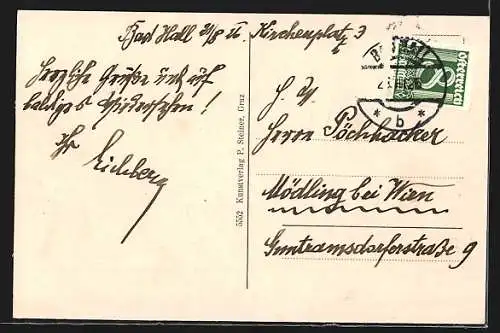 Bad Hall 21/8 26 Kirchenplatz 3
Herzliche Grüße und auf
baldiges Wiedersehen!
Ihr Eichberg
5552 Kunstverlag P. Steiner, Graz
8
Österreich
* b *
Herrn Pöchhacker
Mödling bei Wien
Guntramsdorferstraße 9